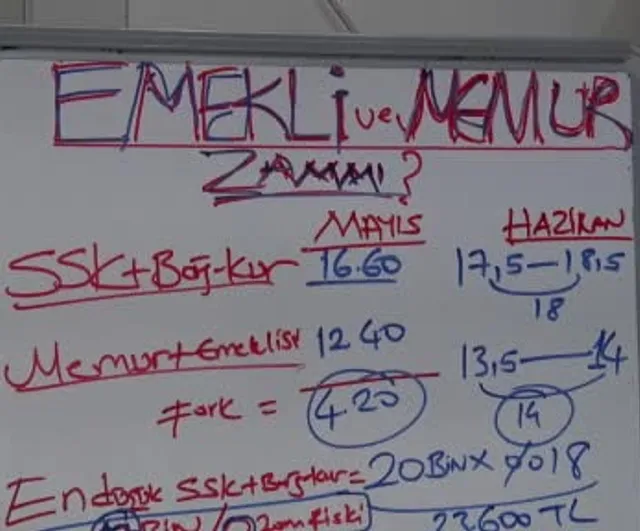 EMEKLİ ve MEMUR
ZAMMI?
MAYIS HAZİRAN
SSK+Bağ-Kur 16.60 17,5—18,5
18
Memur+Emeklisi 12 40 13,5—14
Fark = 4.20 14
En düşük SSK+Bağ-kur= 20 BİN X %018
BİN / zam
23600 TL